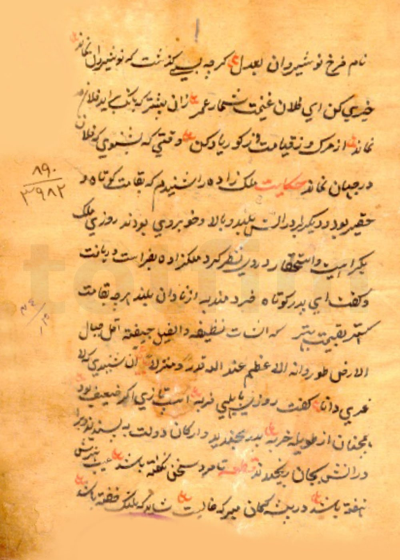 نام فرخ نوشیروان بعدل گرچه بسی گذشت که نوشیروان نماند
خیری کن ای فلان غنیمت شمار عمر زان پیشتر که بانگ براید فلان
نماند از مرک و زقیامت کور یاد کن وقتی که بشنوی که فلان
در جهان نماند حکایت ملک زاده را شنیدم که بقامت کوتاه و
حقیر بود و دیکر برادرانش بلند و بالا و خوبروی بودند روزی ملک
بکراهیت و استحقار در وی نظر کرد ملکزاده بفراست دریافت
و کفت ای پدر کوتاه خردمند به از نادان بلند هرچه بقامت
کهتر بقیمت بهتر که الشاة نظیفة والفیل جیفة اقل جبال
الارض طور وانه الاعظم عند الله قدر و منزلا ان شنیدی که لا
غری دانا کفت روزی بابلهی فربه اسب تازی اکر ضعیف بود
همچنان از طویله خر به پدر بخندید و ارکان دولت به پسندیدند و برا
درانش بجان برنجیدند تا مرد سخن نکفته باشد عیب و هنرش
نهفته باشد در بیشه کمان مبر که خالیست شاید که پلنک خفته باشد
۸۹۰
۳۹۸۲